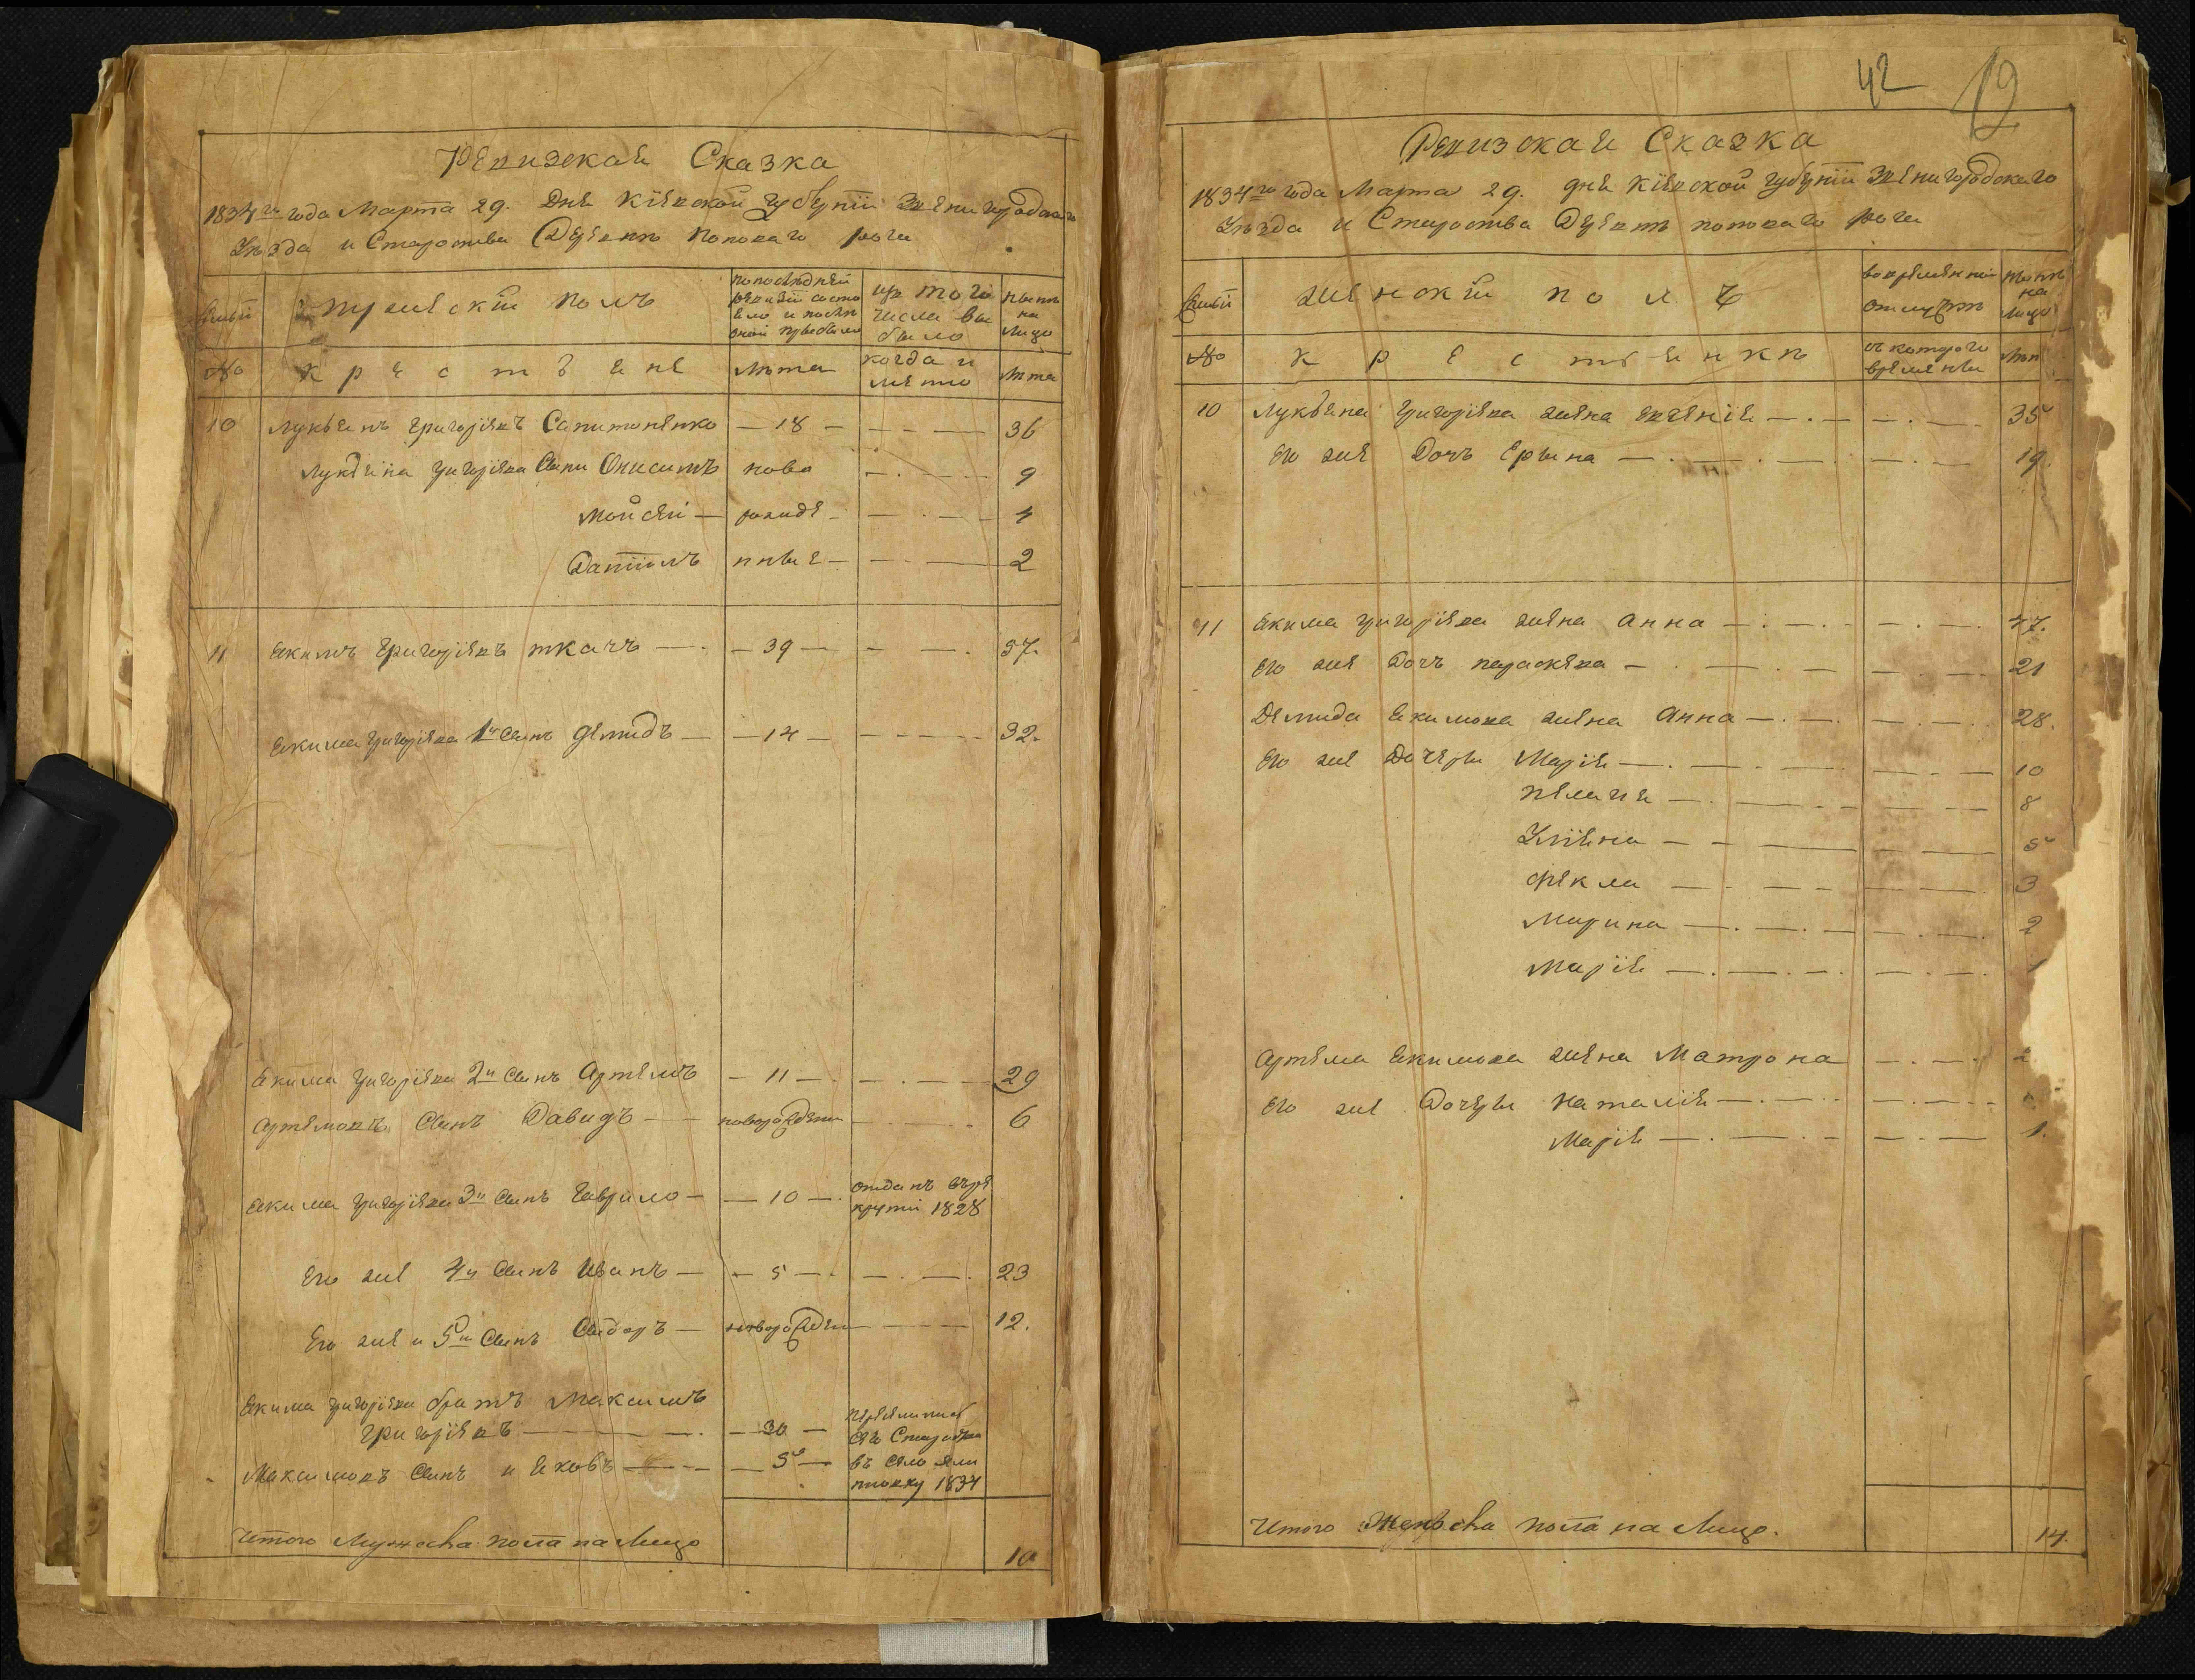 Ревизская Сказка
1834го года Марта 29. Дня Кіевской Губернiи Звенигородскаго
Уезда и Староства Деревнѣ Поповаго рога
Семьи
Мужескій полъ
по последней ревизіи состояло и после оной прибыло
из того числа выбыло
ныне на лицо
№
крестьяне
Лѣта
когда и
Лѣта
10 Лукъянъ Григоріевъ Сапитоненко — 18 — 36
Лукъяна Григоріева Сыни Онисимъ ново 9
Мойсей — рожде 4
Даніилъ нные 2
11 Екимъ Григоріевъ ткачъ — 39 — 57.
Екима Григоріева 1й Сынъ Демидъ — 14 — 32.
Екима Григоріева 2й Сынъ Артемъ — 11 — 29
Артемовъ Сынъ Давидъ — новорожденн 6
Екима Григоріева 3й Сынъ Гаврило — 10 — отданъ въ рекруты 1828
Его же 4й Сынъ Иванъ — 5 — 23
Его же и 5й Сынъ Сидоръ — новорожден 12.
Екима Григоріева братъ Максимъ
Григоріевъ — 30 —
Максимовъ Сынъ и Яковъ — 5 — въ село 1834
Итого Мужеска пола на Лицо 10
42 19
Ревизская Сказка
1834го года Марта 29. дня Кіевской Губерніи Звенигородскаго
Уезда и Староства Деревнѣ поповаго рога
Семьи
женскій полъ
во временной отлучкѣ
ныне на лицо
№
крестьянки
съ котораго времени
Лѣт
10 Лукъяна Григоріева жена Евгенія — 35
Его же Дочъ Ерына — 19.
11 Екима Григоріева жена Анна — 47.
Его же Дочъ параскева — 21
Демида Екимова жена Анна — 28.
Его же Дочеры Марія — 10
Пелагея — 8
Уліяна — 5
Фекла — 3
Марина — 2
Марія —
Артема Екимова жена Матрона
Его же Дочеры Наталія —
Марія — 1.
Итого Женска пола на Лицо. 14.